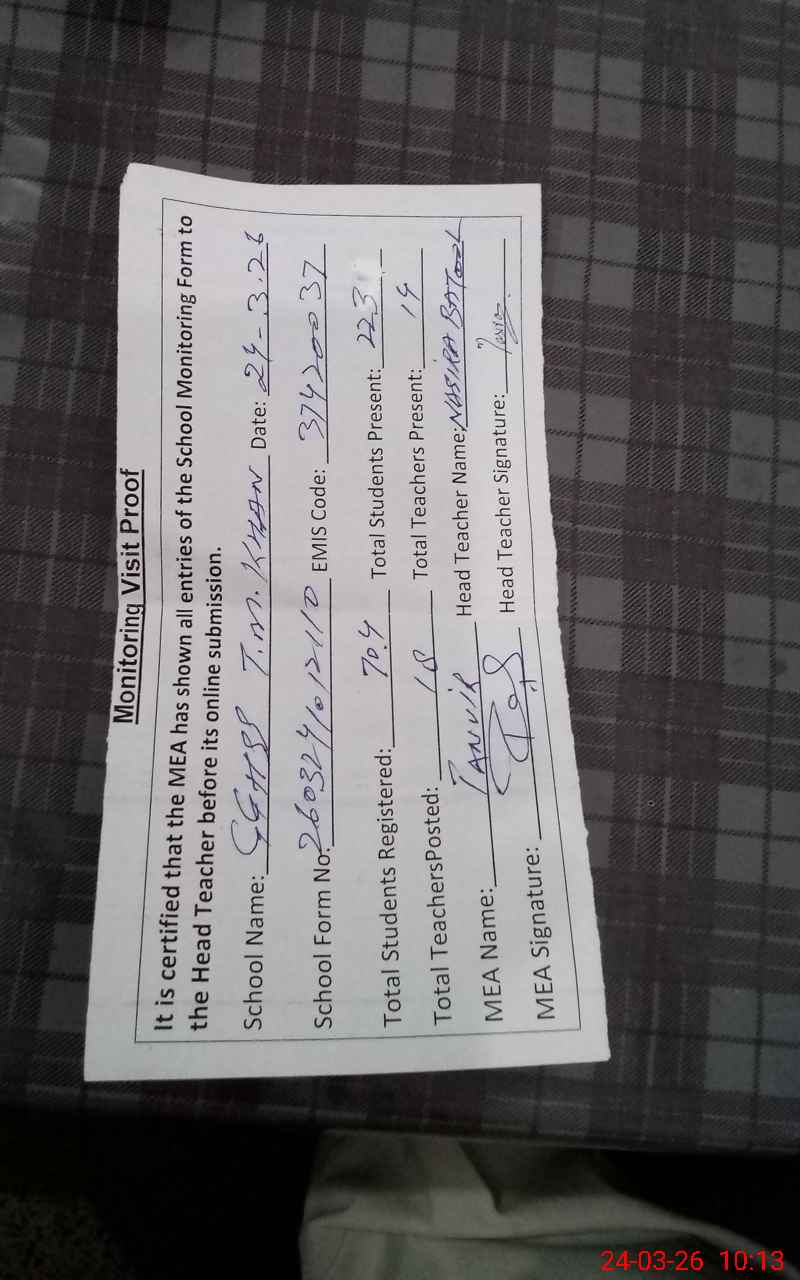 Monitoring Visit Proof
It is certified that the MEA has shown all entries of the School Monitoring Form to
the Head Teacher before its online submission.
School Name: GGHSS T.M. KHAN Date: 24-3-26
School Form No: 2603241012110 EMIS Code: 37420037
Total Students Registered: 704 Total Students Present: 223
Total TeachersPosted: 18 Total Teachers Present: 14
MEA Name: TANVIR Head Teacher Name: NASIRA BATOOL
MEA Signature: Head Teacher Signature:
24-03-26 10:13